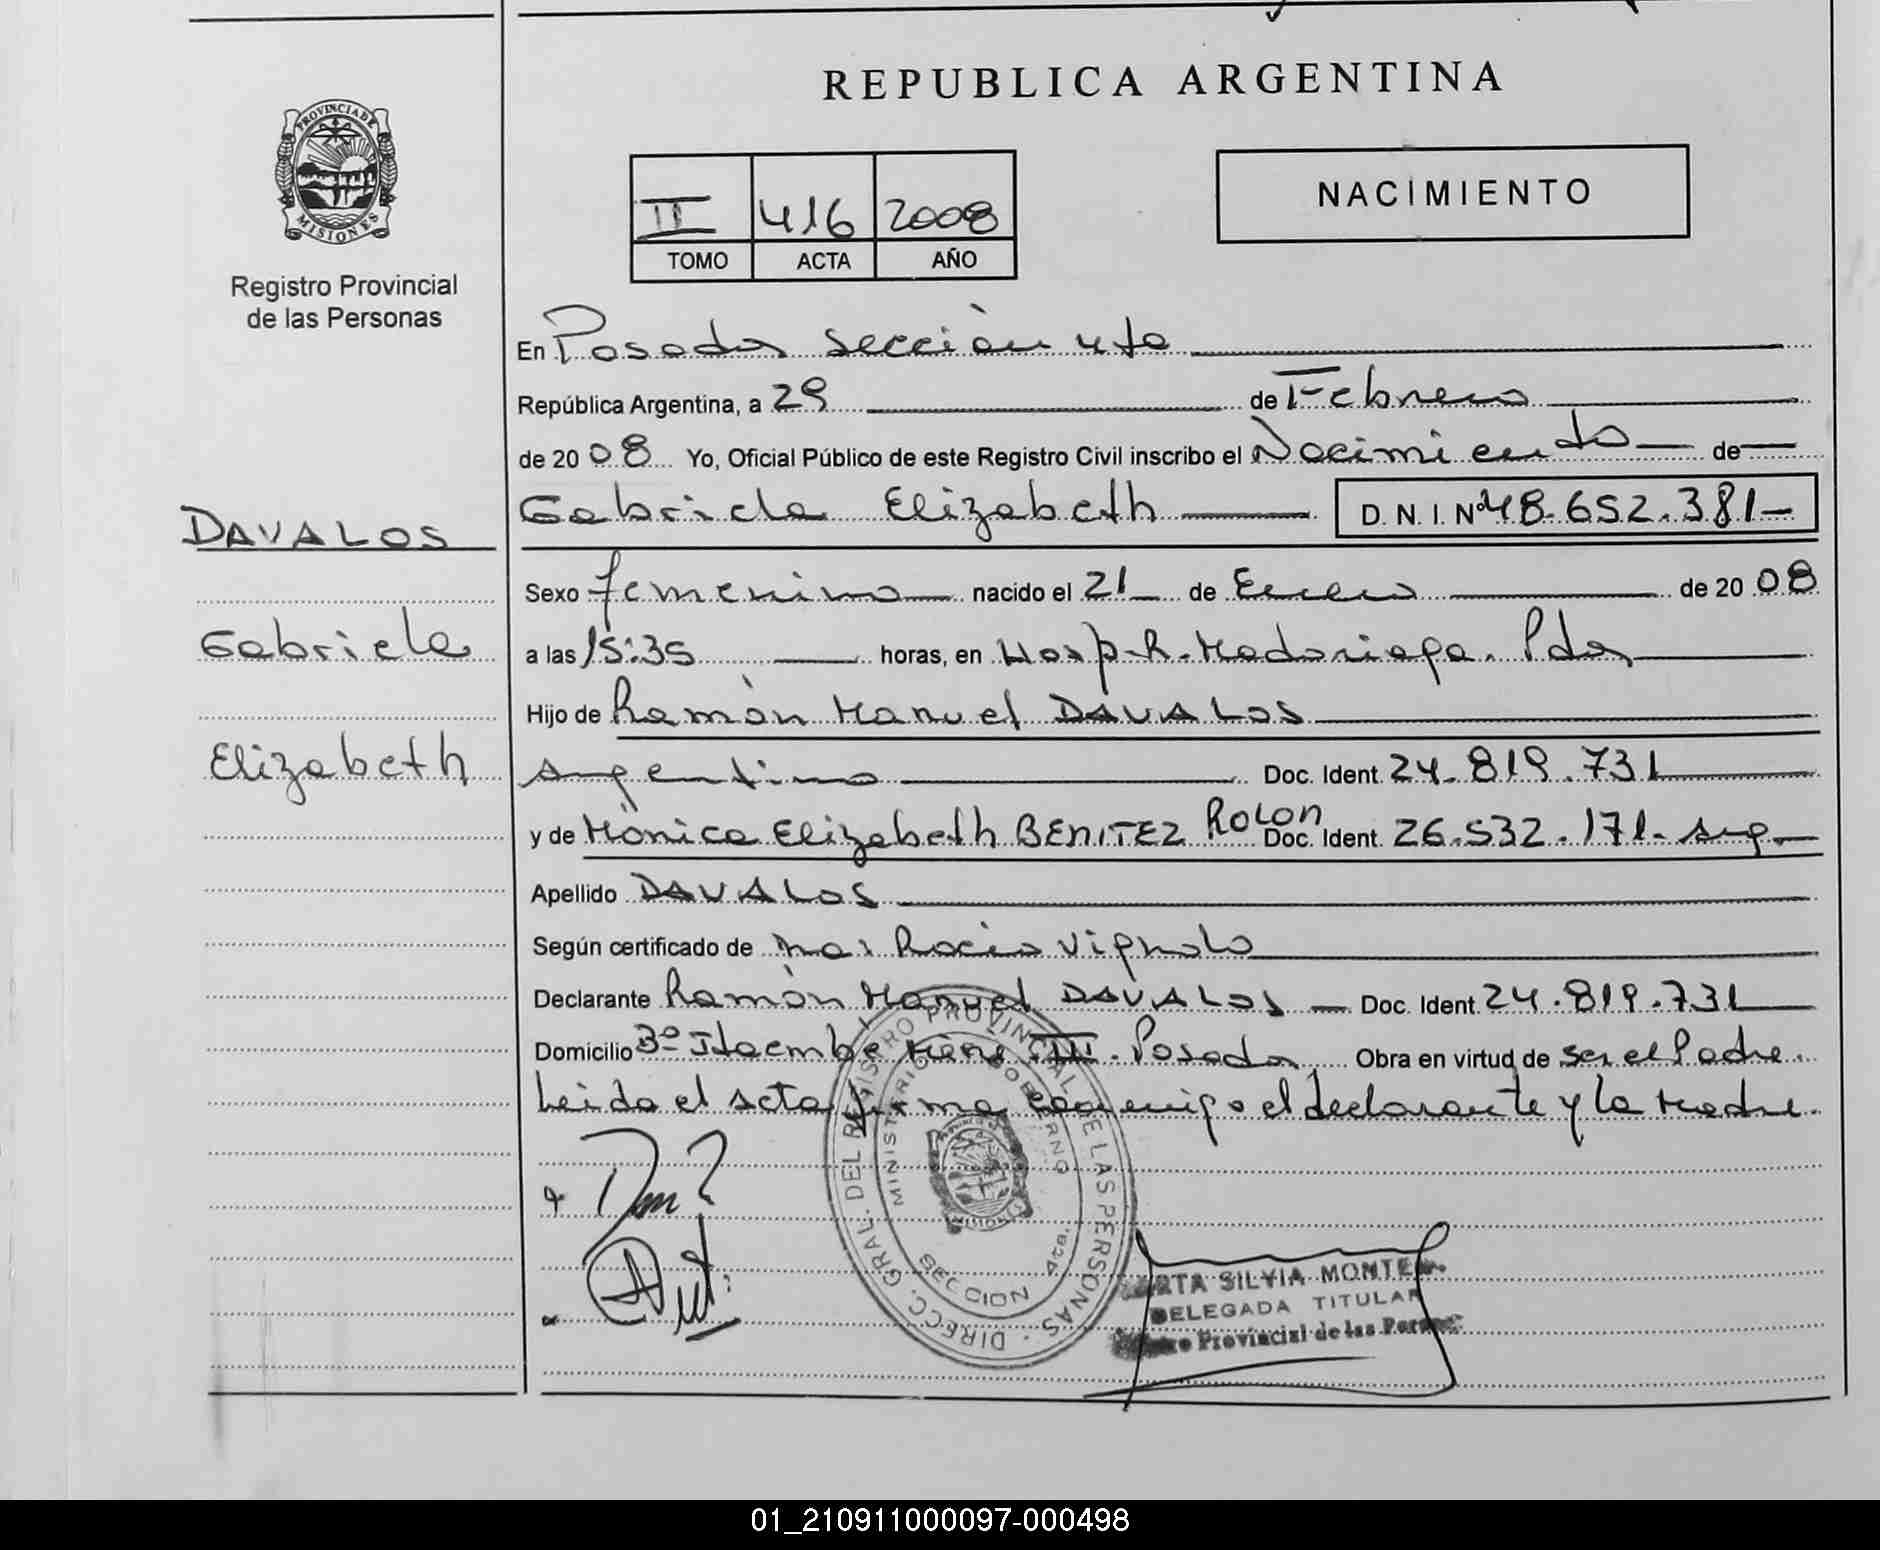 REPUBLICA ARGENTINA
PROVINCIA DE
MISIONES
Registro Provincial
de las Personas
II 416 2008
TOMO ACTA AÑO
NACIMIENTO
En Posadas sección 4ta
República Argentina, a 29 de Febrero
de 2008 Yo, Oficial Público de este Registro Civil inscribo el Nacimiento de
Gabriela Elizabeth D. N. I. Nº 48.652.381-
DAVALOS
Gabriela
Elizabeth
Sexo femenino nacido el 21 de Enero de 2008
a las 15:35 horas, en Hosp. R. Madariaga. Pdas
Hijo de Ramón Manuel DAVALOS
argentino Doc. Ident. 24.819.731
y de Mónica Elizabeth BENITEZ ROLON Doc. Ident. 26.532.171- arg.
Apellido DAVALOS
Según certificado de Rocio Vignolo
Declarante Ramón Manuel DAVALOS Doc. Ident. 24.819.731
Domicilio Bº Itaembe III. Posadas Obra en virtud de ser el Padre.
Leida el acta firma conmigo el declarante y la Madre.
DIRECC. GRAL. DEL REGISTRO PROVINCIAL DE LAS PERSONAS
MINISTERIO GOBIERNO
SECCION 4ta.
SILVIA MONTE
DELEGADA TITULAR
Provincial de las
01_210911000097-000498